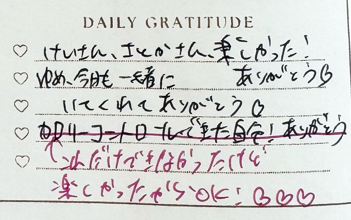 DAILY GRATITUDE
けいさん、さとかさん、楽しかった!
ゆめ、今日も一緒に ありがとう
いてくれてありがとう
カロリーコントロールできた自分!ありがとう
これだけできなかったけど
楽しかったからOK!